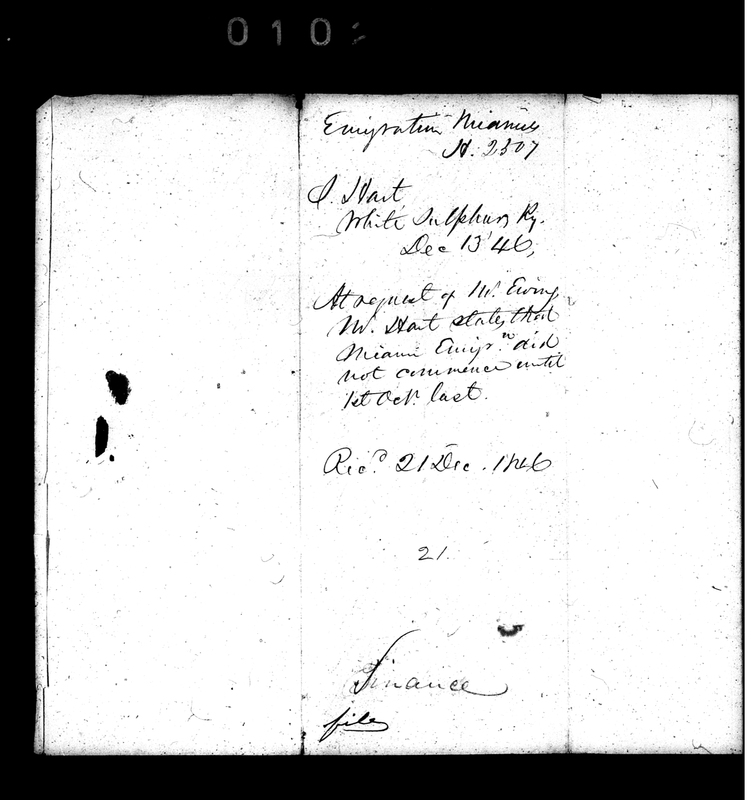 010
Emigration Miamies
H. 2307
S. Hart
White Sulphur Ky.
Dec 13 '46,
At request of Mr. Ewing
Mr. Hart states that
Miami Emigr.n did
not commence until
1st Octr. last.
Rec.d 21 Dec. 1846
21.
Finance
file